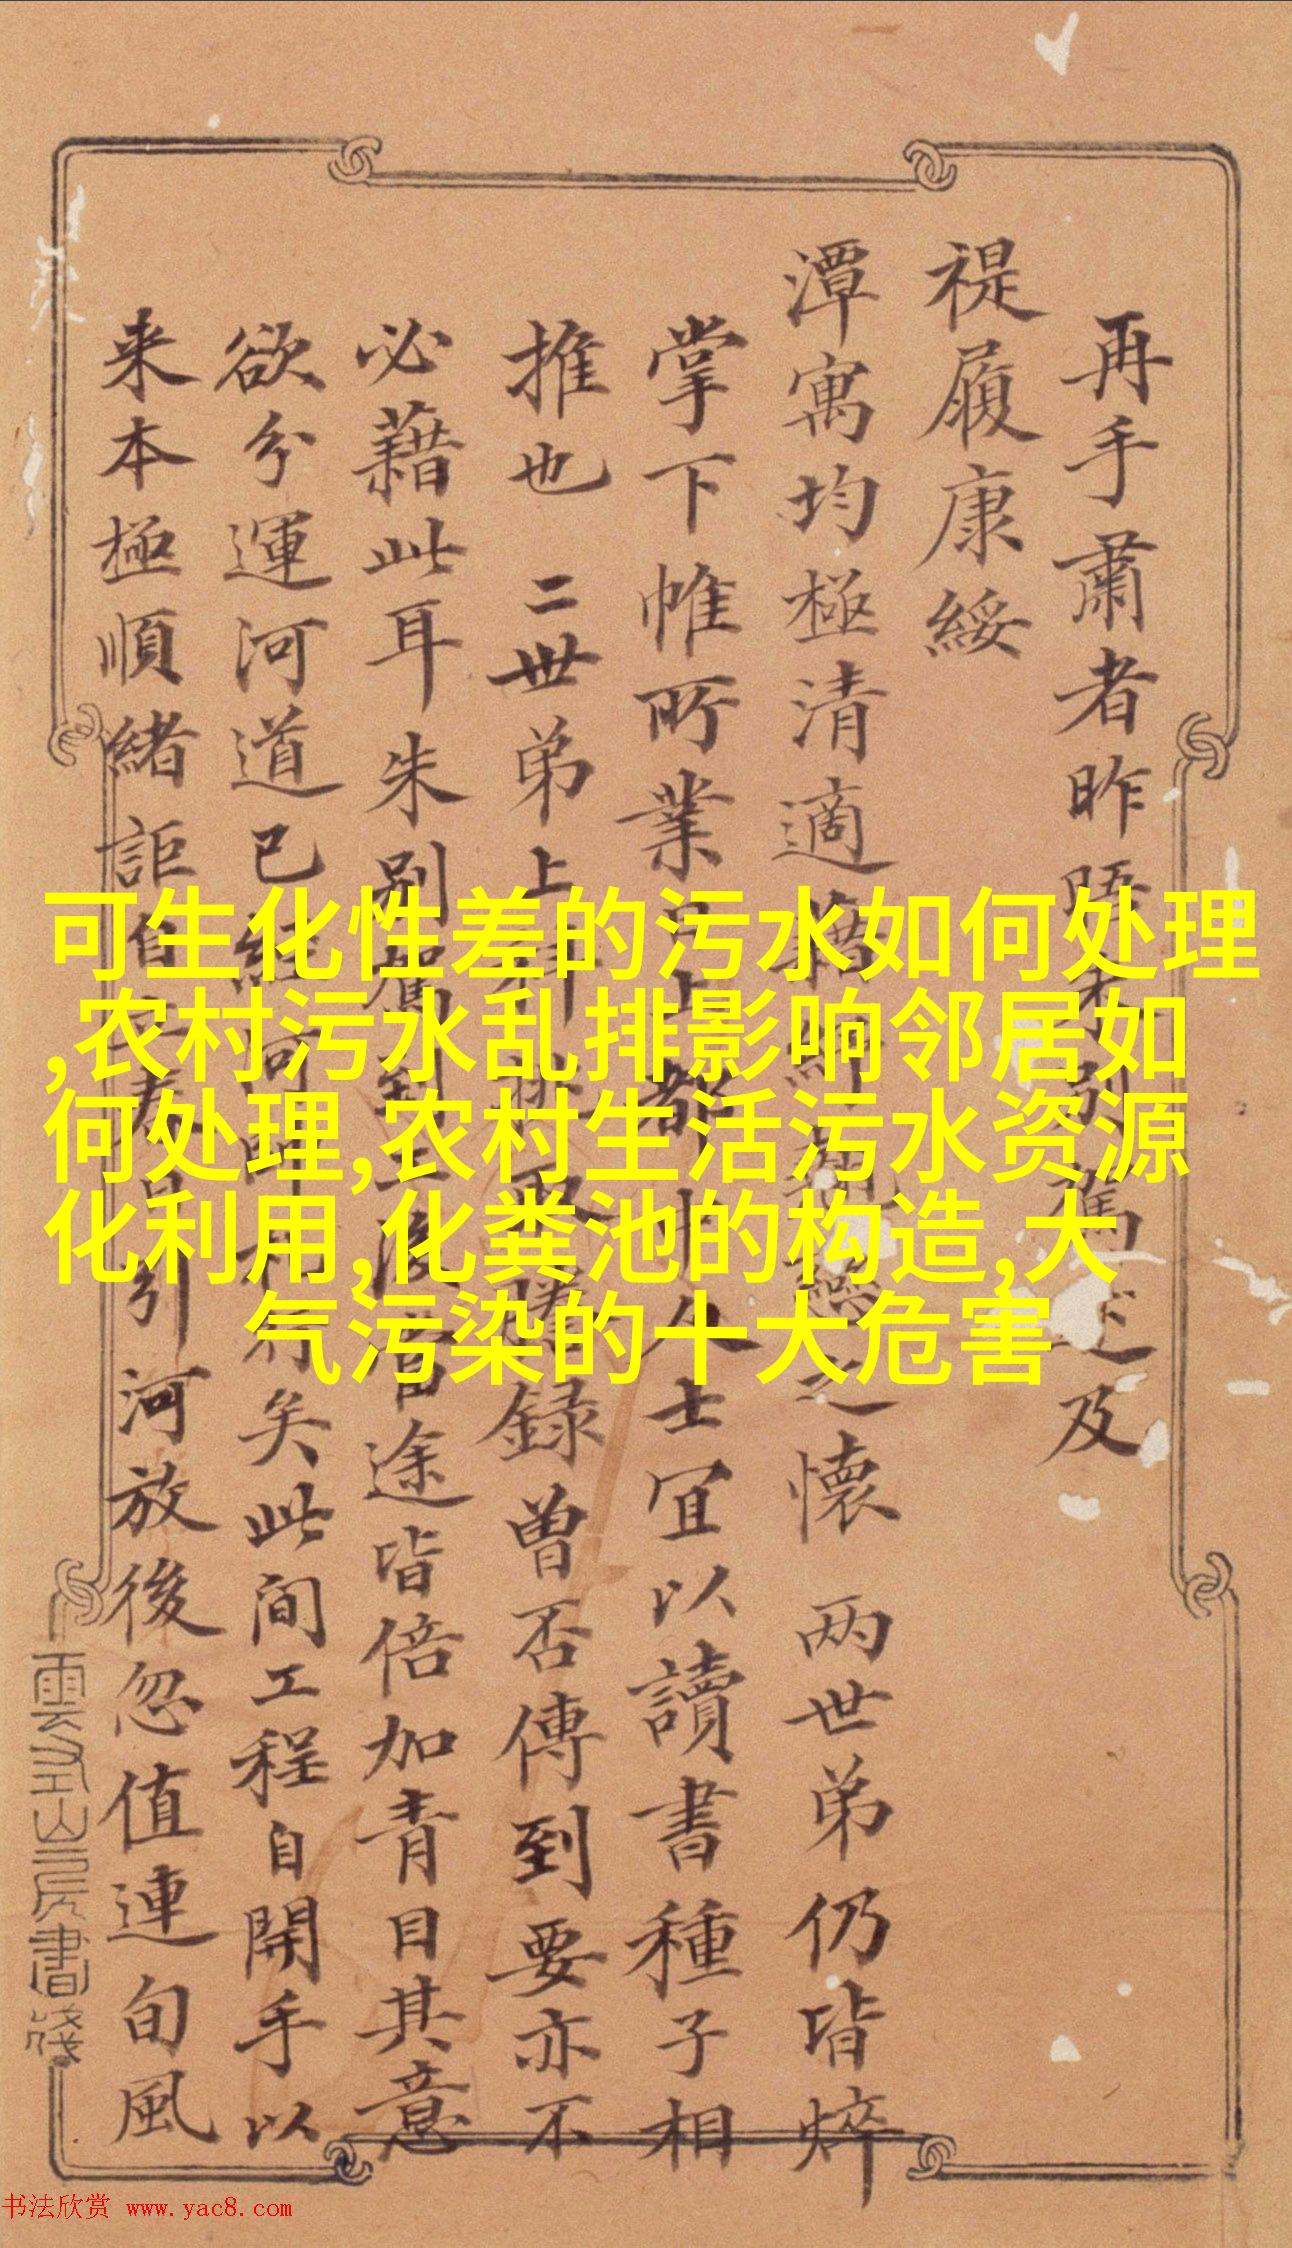 再手肅者昨晤朱別駕述及
禔履康綏
潭寓均極清適藉之懷 两世弟仍皆焠
掌下帷所業日上都中人士宜以讀書種子相
推也 二世弟上科挑取謄錄曾否傳到要亦不
必藉此耳朱別駕到工後當途皆倍加青目其意
欲分運河道已經河矣此间工程自開手以
来本極順緒詎自引河放後忽值連旬風
雲山房書箋
可生化性差的污水如何处理
,农村污水乱排影响邻居如
何处理,农村生活污水资源
化利用,化粪池的构造,大
气污染的十大危害
书法欣赏 www.yac8.com